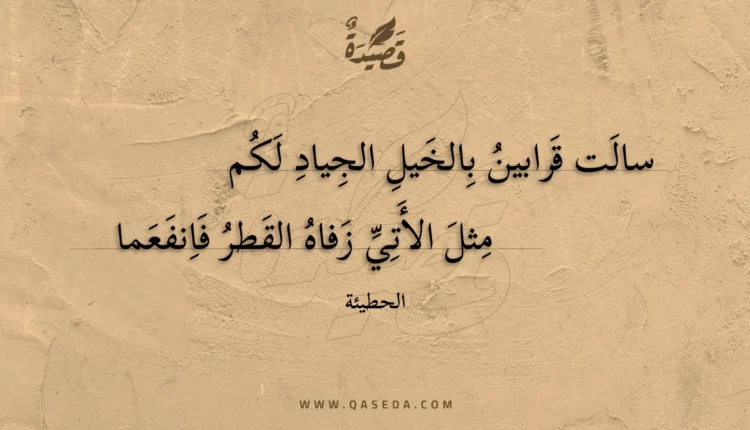 قَصِيدَةٌ
سالَت قَرابينُ بِالخَيلِ الجِيادِ لَكُم
مِثلَ الأَتِيِّ زَفاهُ القَطرُ فَاِنفَعَما
الحطيئة
WWW.QASEDA.COM